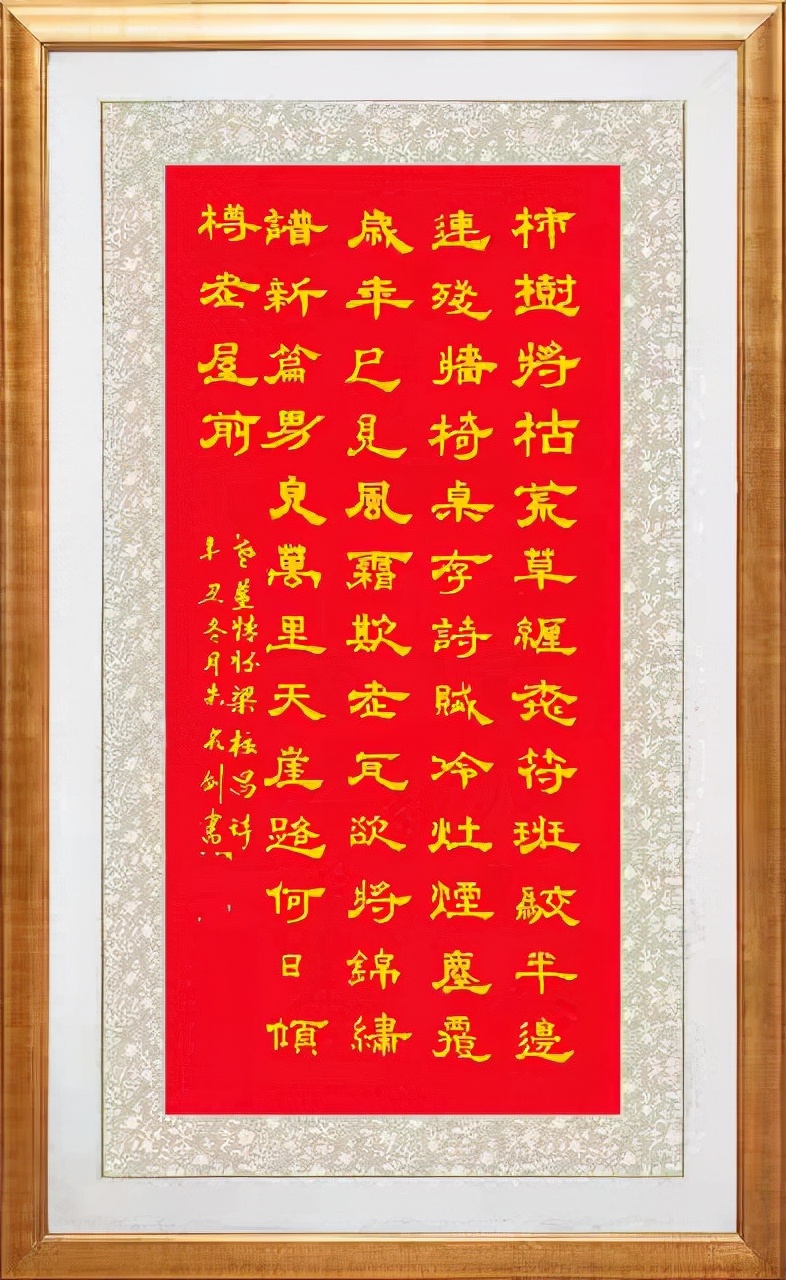 柿樹將枯荒草纏桃符班駮半邊
連殘牆椅桌存詩賦冷灶煙塵覆
歲年已見風霜欺老瓦欲將錦繡
譜新篇男兒萬里天崖路何日傾
樽老屋前
情怀梁昌詩
辛丑冬月朱剑書